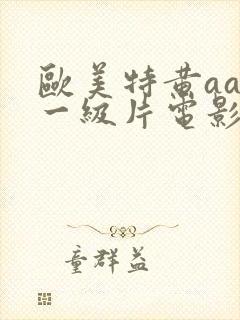 歐美特黄aa
一級片電影
童群益